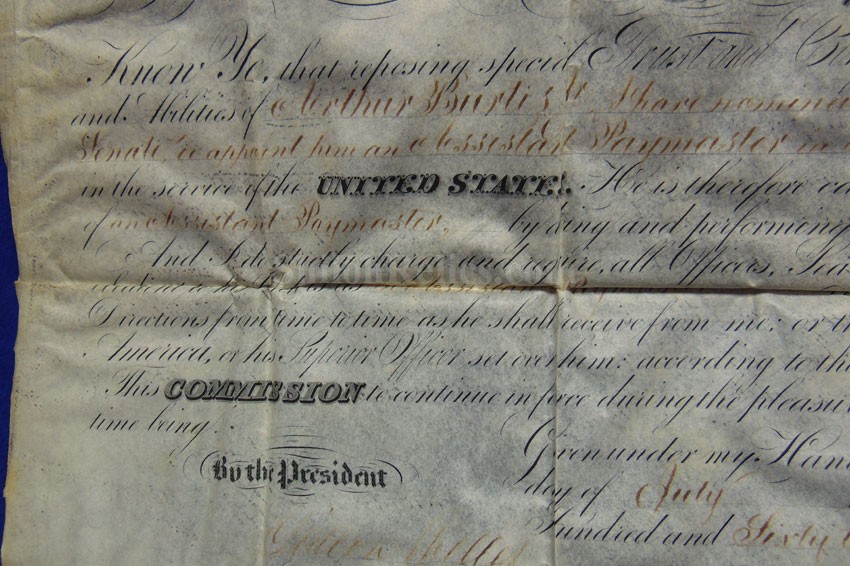 Know Ye, that reposing special Trust and
and Abilities of Arthur Burtis Jr I have
Senate to appoint him an Assistant Paymaster in
in the service of the UNITED STATES. He is therefore
of an Assistant Paymaster, by doing and performing
And I do strictly charge and require, all Officers,
Directions from time to time as he shall receive from me; or
America, or his Superior Officer set over him: according to the
This COMMISSION to continue in force during the
time being.
Given under my
By the President
day of July
Hundred and Sixty